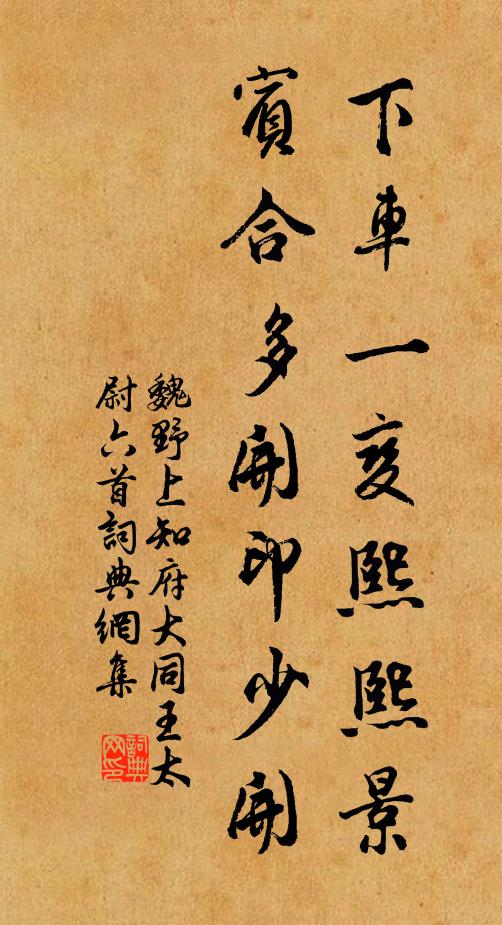 下車一变熙熙景
賓合多開印少開
魏野上知府大同王太
尉六首詞典網集
詞典
网印